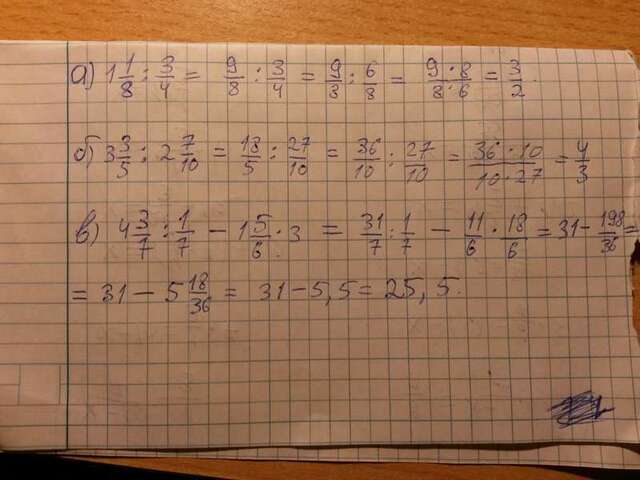 а) 1 1/8 : 3/4 = 9/8 : 3/4 = 9/8 : 6/8 = 9·8/8·6 = 3/2.
б) 3 3/5 : 2 7/10 = 18/5 : 27/10 = 36/10 : 27/10 = 36·10/10·27 = 4/3
в) 4 3/7 : 1/7 − 1 5/6 · 3 = 31/7 : 1/7 − 11/6 · 18/6 = 31 − 198/36 =
= 31 − 5 18/36 = 31 − 5,5 = 25,5.